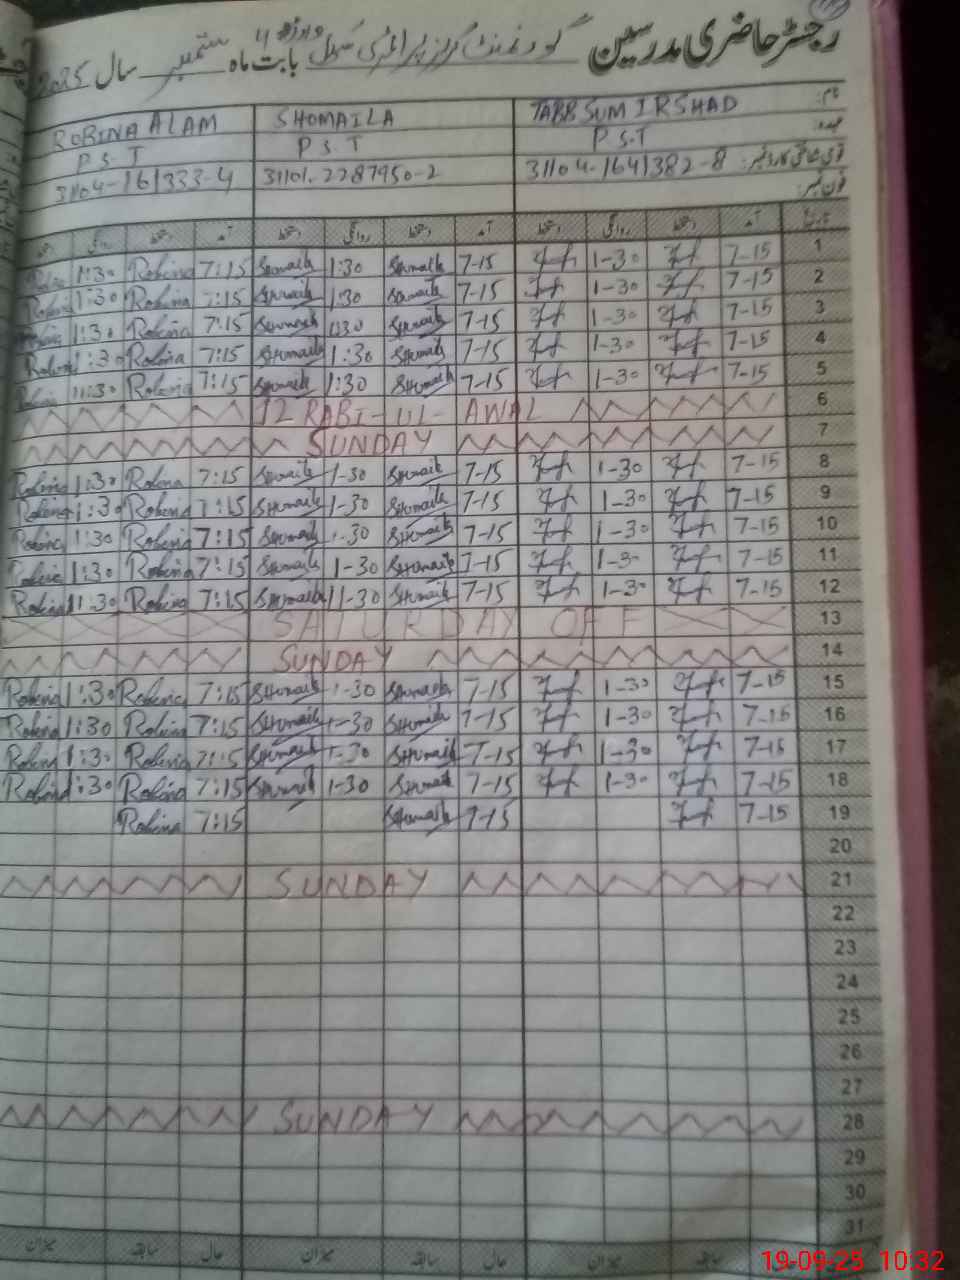 رجسٹر حاضری مدرسین گورنمنٹ گرلز پرائمری سکول بابت ماہ ستمبر سال 2025
نام: TABBSUM IRSHAD SHOMAILA ROBINA ALAM
عہدہ: P.S.T P.S.T P.S.T
قومی شناختی کارڈ نمبر: 31104-1641382-8 31101-2287950-2 31104-161333-4
فون نمبر:
تاریخ آمد دستخط روانگی دستخط آمد دستخط روانگی دستخط آمد دستخط روانگی دستخط
Robina 1:30 Robina 7:15 Shumaila 1:30 Shumaila 7-15 1-30 7-15 1
Robina 1:30 Robina 7:15 Shumaila 1:30 Shumaila 7-15 1-30 7-15 2
Robina 1:30 Robina 7:15 Shumaila 1:30 Shumaila 7-15 1-30 7-15 3
Robina 1:30 Robina 7:15 Shumaila 1:30 Shumaila 7-15 1-30 7-15 4
Robina 1:30 Robina 7:15 Shumaila 1:30 Shumaila 7-15 1-30 7-15 5
12 RABI-UL-AWAL 6
SUNDAY 7
Robina 1:30 Robina 7:15 Shumaila 1-30 Shumaila 7-15 1-30 7-15 8
Robina 1:30 Robina 7:15 Shumaila 1-30 Shumaila 7-15 1-30 7-15 9
Robina 1:30 Robina 7:15 Shumaila 1-30 Shumaila 7-15 1-30 7-15 10
Robina 1:30 Robina 7:15 Shumaila 1-30 Shumaila 7-15 1-30 7-15 11
Robina 1:30 Robina 7:15 Shumaila 1-30 Shumaila 7-15 1-30 7-15 12
SATURDAY OFF 13
SUNDAY 14
Robina 1:30 Robina 7:15 Shumaila 1-30 Shumaila 7-15 1-30 7-15 15
Robina 1:30 Robina 7:15 Shumaila 1-30 Shumaila 7-15 1-30 7-15 16
Robina 1:30 Robina 7:15 Shumaila 1-30 Shumaila 7-15 1-30 7-15 17
Robina 1:30 Robina 7:15 Shumaila 1-30 Shumaila 7-15 1-30 7-15 18
Robina 7:15 Shumaila 7-15 7-15 19
20
SUNDAY 21
22
23
24
25
26
27
SUNDAY 28
29
30
31
حال سابقہ میزان حال سابقہ میزان حال سابقہ میزان
19-09-25 10:32